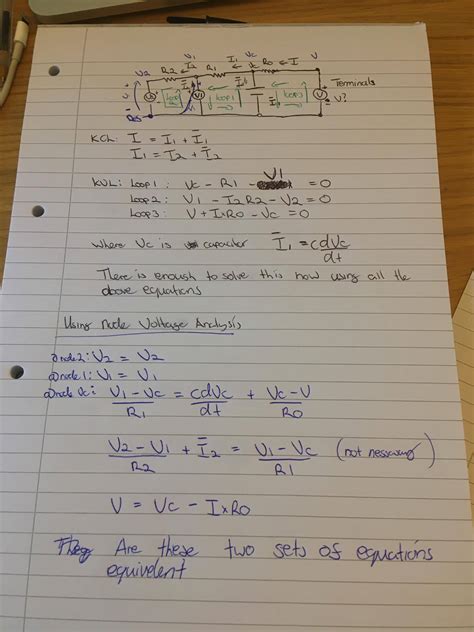 V2 R2 I2 V1 R1 I1 Vc R0 I V
Loop2 V1 Loop1 Loop3 Terminals
V?
KCL: I = I1 + I̅1
I1 = I2 + I̅2
KVL: Loop1: Vc - R1 - V1 = 0
Loop2: V1 - I2R2 - V2 = 0
Loop3: V + I×R0 - Vc = 0
Where Vc is capacitor I̅1 = cdVc/dt
There is enough to solve this now using all the
above equations
Using Node Voltage Analysis
@node2: V2 = V2
@node1: V1 = V1
@node Vc: (V1 - Vc)/R1 = cdVc/dt + (Vc - V)/R0
(V2 - V1)/R2 + I̅2 = (V1 - Vc)/R1 (not nessesary)
V = Vc - I×R0
Are these two sets of equations
equivelent